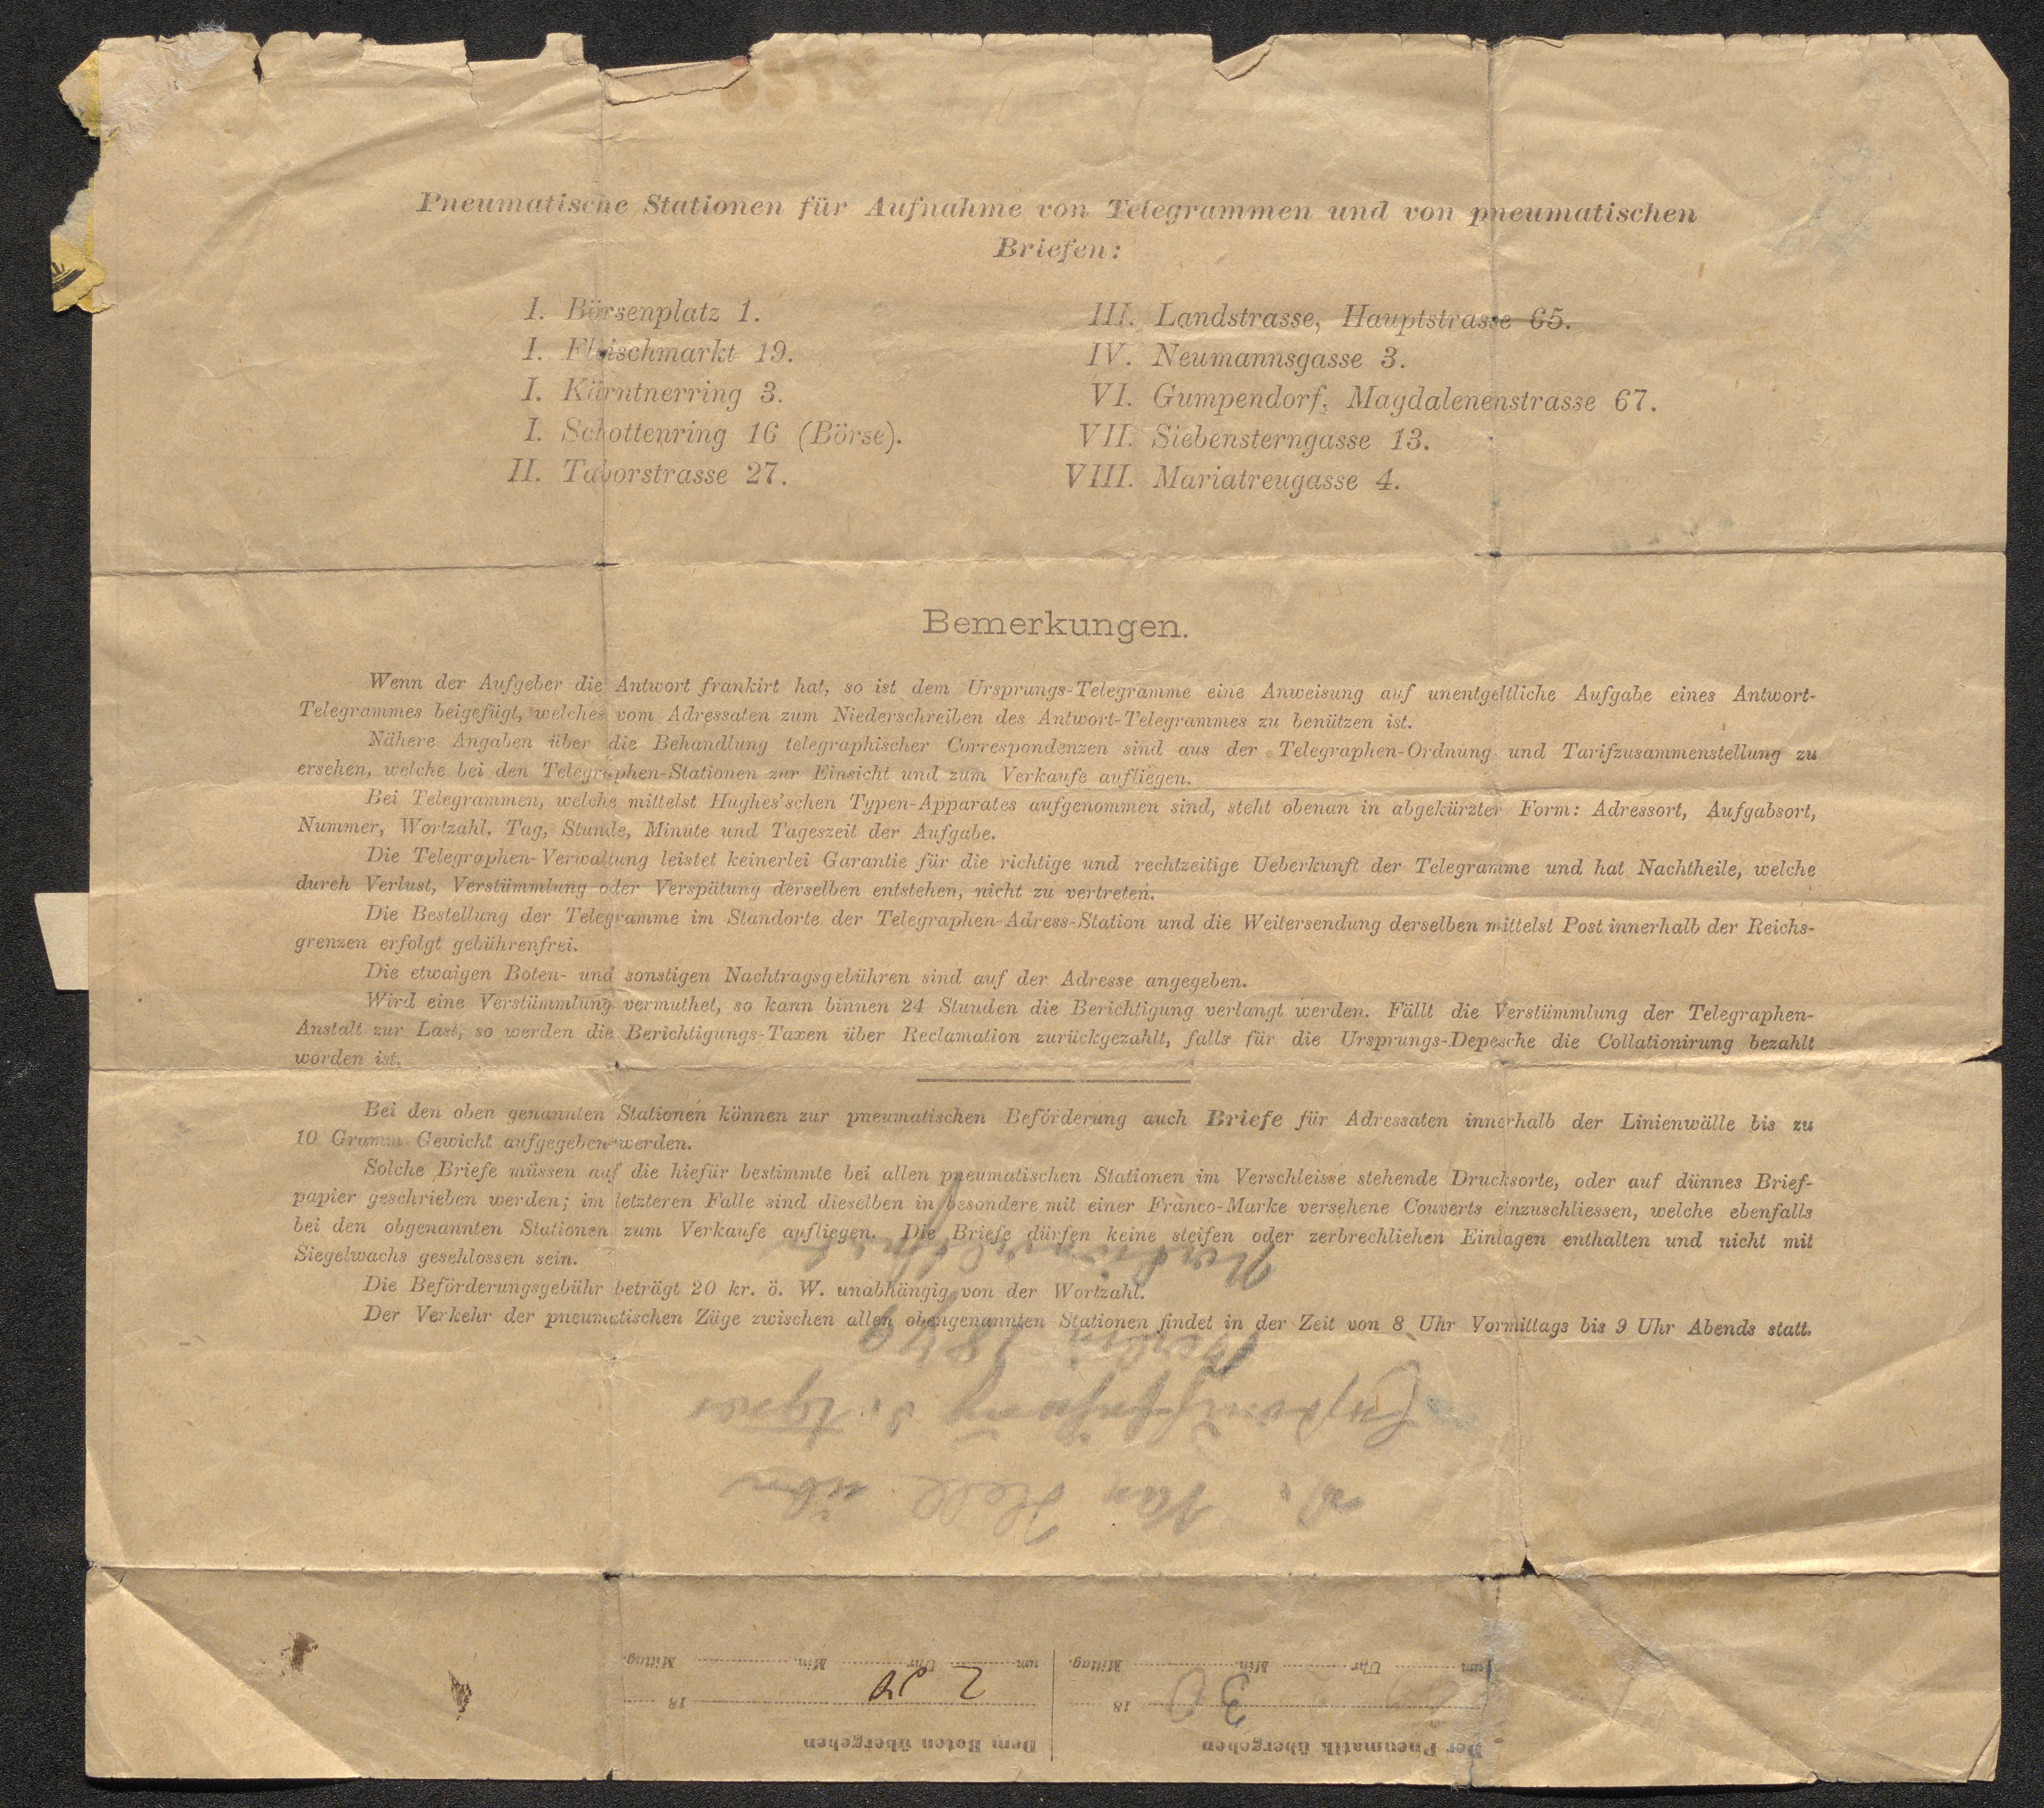 Pneumatische Stationen für Aufnahme von Telegrammen und von pneumatischen
Briefen:
I. Börsenplatz 1.
I. Fleischmarkt 19.
I. Kärntnerring 3.
I. Schottenring 16 (Börse).
II. Taborstrasse 27.
III. Landstrasse, Hauptstrasse 65.
IV. Neumannsgasse 3.
VI. Gumpendorf, Magdalenenstrasse 67.
VII. Siebensterngasse 13.
VIII. Mariatreugasse 4.
Bemerkungen.
Wenn der Aufgeber die Antwort frankirt hat, so ist dem Ursprungs-Telegramme eine Anweisung auf unentgeltliche Aufgabe eines Antwort-
Telegrammes beigefügt, welches vom Adressaten zum Niederschreiben des Antwort-Telegrammes zu benützen ist.
Nähere Angaben über die Behandlung telegraphischer Correspondenzen sind aus der Telegraphen-Ordnung und Tarifzusammenstellung zu
ersehen, welche bei den Telegraphen-Stationen zur Einsicht und zum Verkaufe aufliegen.
Bei Telegrammen, welche mittelst Hughes'schen Typen-Apparates aufgenommen sind, steht obenan in abgekürzter Form: Adressort, Aufgabsort,
Nummer, Wortzahl, Tag, Stunde, Minute und Tageszeit der Aufgabe.
Die Telegraphen-Verwaltung leistet keinerlei Garantie für die richtige und rechtzeitige Ueberkunft der Telegramme und hat Nachtheile, welche
durch Verlust, Verstümmlung oder Verspätung derselben entstehen, nicht zu vertreten.
Die Bestellung der Telegramme im Standorte der Telegraphen-Adress-Station und die Weitersendung derselben mittelst Post innerhalb der Reichs-
grenzen erfolgt gebührenfrei.
Die etwaigen Boten- und sonstigen Nachtragsgebühren sind auf der Adresse angegeben.
Wird eine Verstümmlung vermuthet, so kann binnen 24 Stunden die Berichtigung verlangt werden. Fällt die Verstümmlung der Telegraphen-
Anstalt zur Last, so werden die Berichtigungs-Taxen über Reclamation zurückgezahlt, falls für die Ursprungs-Depesche die Collationirung bezahlt
worden ist.
Bei den oben genannten Stationen können zur pneumatischen Beförderung auch Briefe für Adressaten innerhalb der Linienwälle bis zu
10 Gramm Gewicht aufgegeben werden.
Solche Briefe müssen auf die hiefür bestimmte bei allen pneumatischen Stationen im Verschleisse stehende Drucksorte, oder auf dünnes Brief-
papier geschrieben werden; im letzteren Falle sind dieselben in besondere mit einer Franco-Marke versehene Couverts einzuschliessen, welche ebenfalls
bei den obgenannten Stationen zum Verkaufe aufliegen. Die Briefe dürfen keine steifen oder zerbrechlichen Einlagen enthalten und nicht mit
Siegelwachs geschlossen sein.
Die Beförderungsgebühr beträgt 20 kr. ö. W. unabhängig von der Wortzahl.
Der Verkehr der pneumatischen Züge zwischen allen obengenannten Stationen findet in der Zeit von 8 Uhr Vormittags bis 9 Uhr Abends statt.
Der Pneumatik übergeben
30 18
um Uhr Min. Mittag.
Dem Boten übergeben
2 18
um Uhr Min. Mittag.
Hell über
Berlin 1849